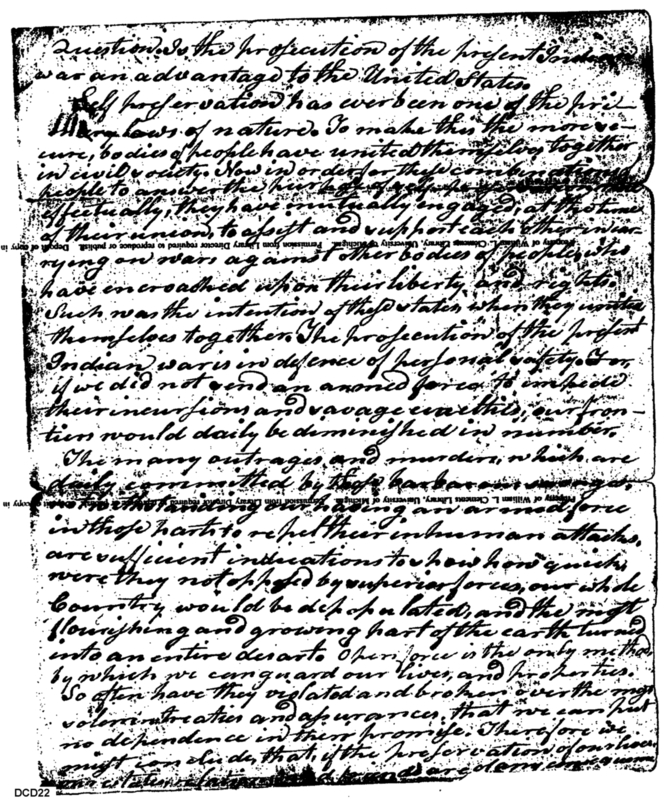 Question. Is the prosecution of the present Indian
war an advantage to the United States.
Self preservation has ever been one of the pri-
mary laws of nature. To make this the more se-
cure, bodies of people have united themselves together
in civil society. Now in order for these combinations of
people to answer the
effectually, they have mutually engaged, at the time
of their union, to assist and support each other in car-
Property of William L. Clements Library, University of Michigan. Permission from Library Director required to reproduce or publish. Deposit of copy in
rying on wars against other bodies of people, who
have encroached upon their liberty and rights.
Such was the intention of these states when they united
themselves together. The prosecution of the present
Indian war is in defence of personal safety. For
if we did not send an armed force to impede
their incursions and savage cruelties, our fron-
tiers would daily be diminished in number.
The many outrages and murders, which are
daily committed by those barbarous
Property of William L. Clements Library, University of Michigan. Permission from Library Director required
our having an armed force
in those parts to repel their inhuman attacks,
are sufficient indications to show how quick,
were they not opposed by superior forces, our whole
Country would be depopulated, and the most
flourishing and growing part of the earth turned
into an entire desart. Open force is the only method,
by which we can guard our lives, and properties.
So often have they violated and broken over the most
solemn treaties and assurances, that we can put
no dependence in their promise. Therefore we
must conclude, that, if the preservation of our lives
our estates,
DCD22